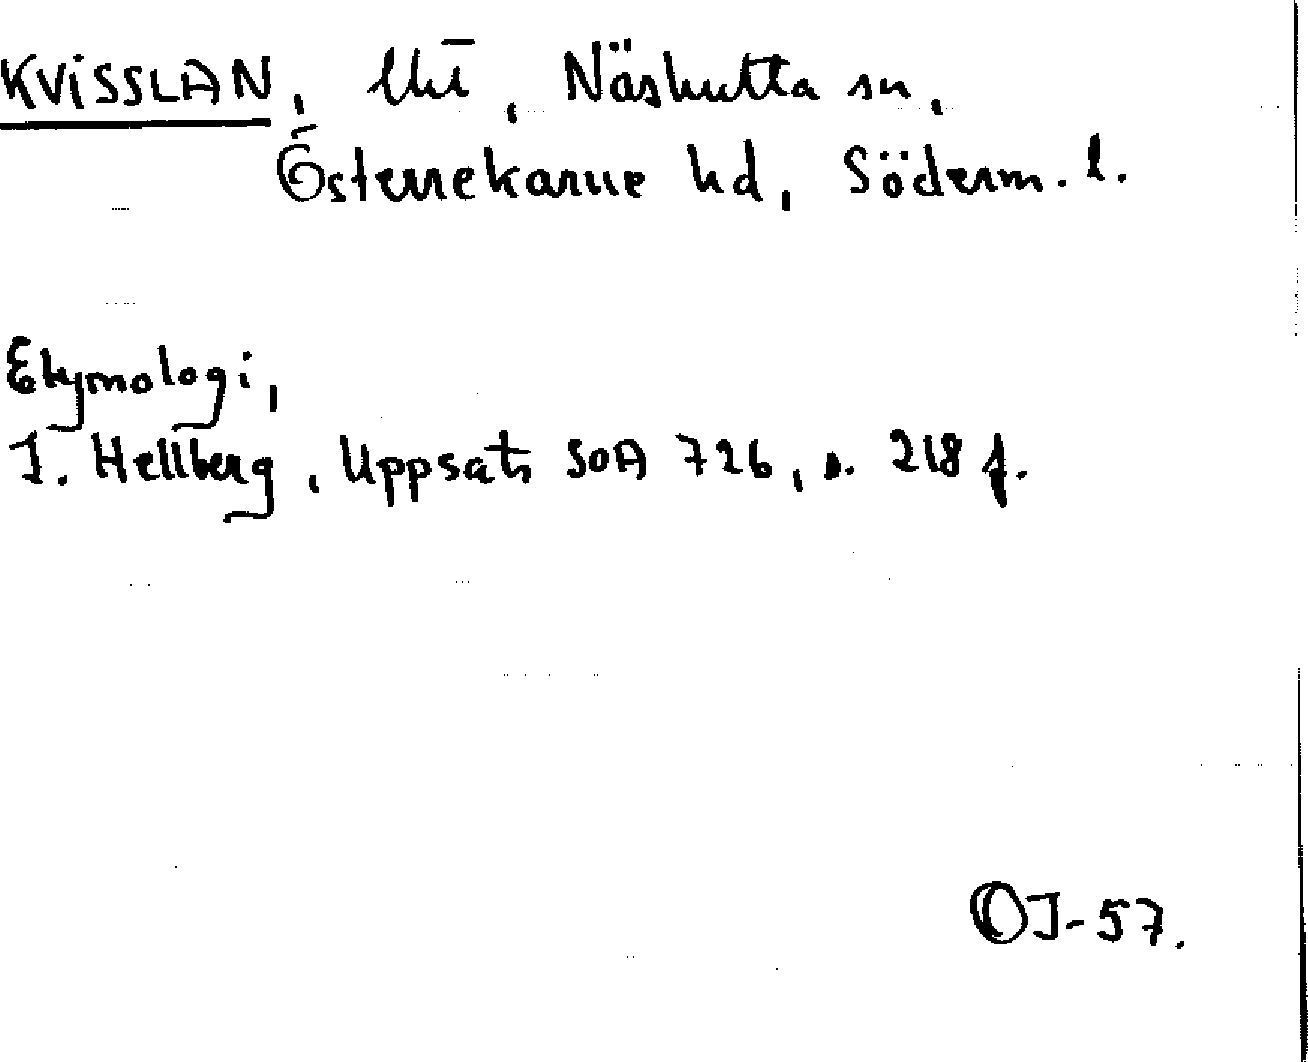 KVISSLAN, lht, Näshulta sn,
Österrekarne hd, Söderm. l.
Etymologi,
I. Hellberg, Uppsats SOA 726, s. 218 f.
OJ-57.